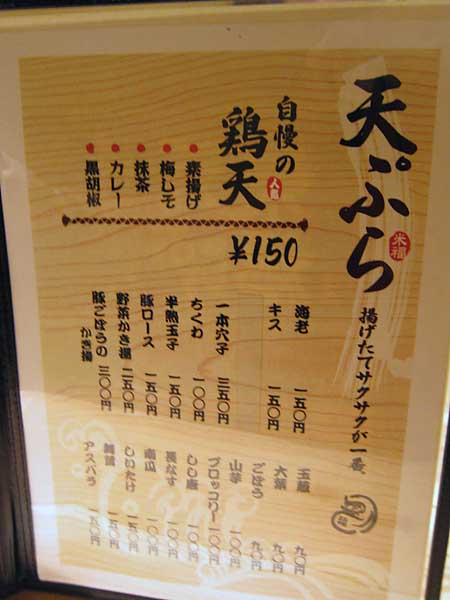 天ぷら
米福
揚げたてサクサクが一番。
自慢の
鶏天
人気
素揚げ
梅しそ
抹茶
カレー
黒胡椒
¥150
海老 一五〇円
キス 一五〇円
一本穴子 三五〇円
ちくわ 一〇〇円
半熟玉子 一五〇円
豚ロース 一五〇円
野菜かき揚 二五〇円
豚ごぼうの
かき揚 三〇〇円
玉葱 九〇円
大葉 九〇円
ごぼう 九〇円
山芋 一〇〇円
ブロッコリー 一〇〇円
しし唐 一〇〇円
長なす 一〇〇円
南瓜 一〇〇円
しいたけ 一五〇円
一五〇円
アスパラ 一五〇円